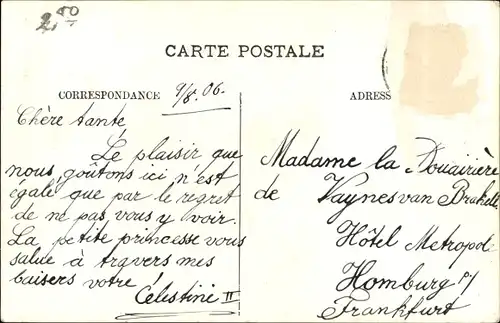 2.50
CARTE POSTALE
CORRESPONDANCE 9/8.06.
ADRESS
Chère tante
Le plaisir que
nous goûtons ici n'est
égale que par le regret
de ne pas vous y voir.
La petite princesse vous
salue à travers mes
baisers votre
Célestine II
Madame la Douairière
de Vaynes van Brakell
Hôtel Metropol
Homburg
Frankfurt